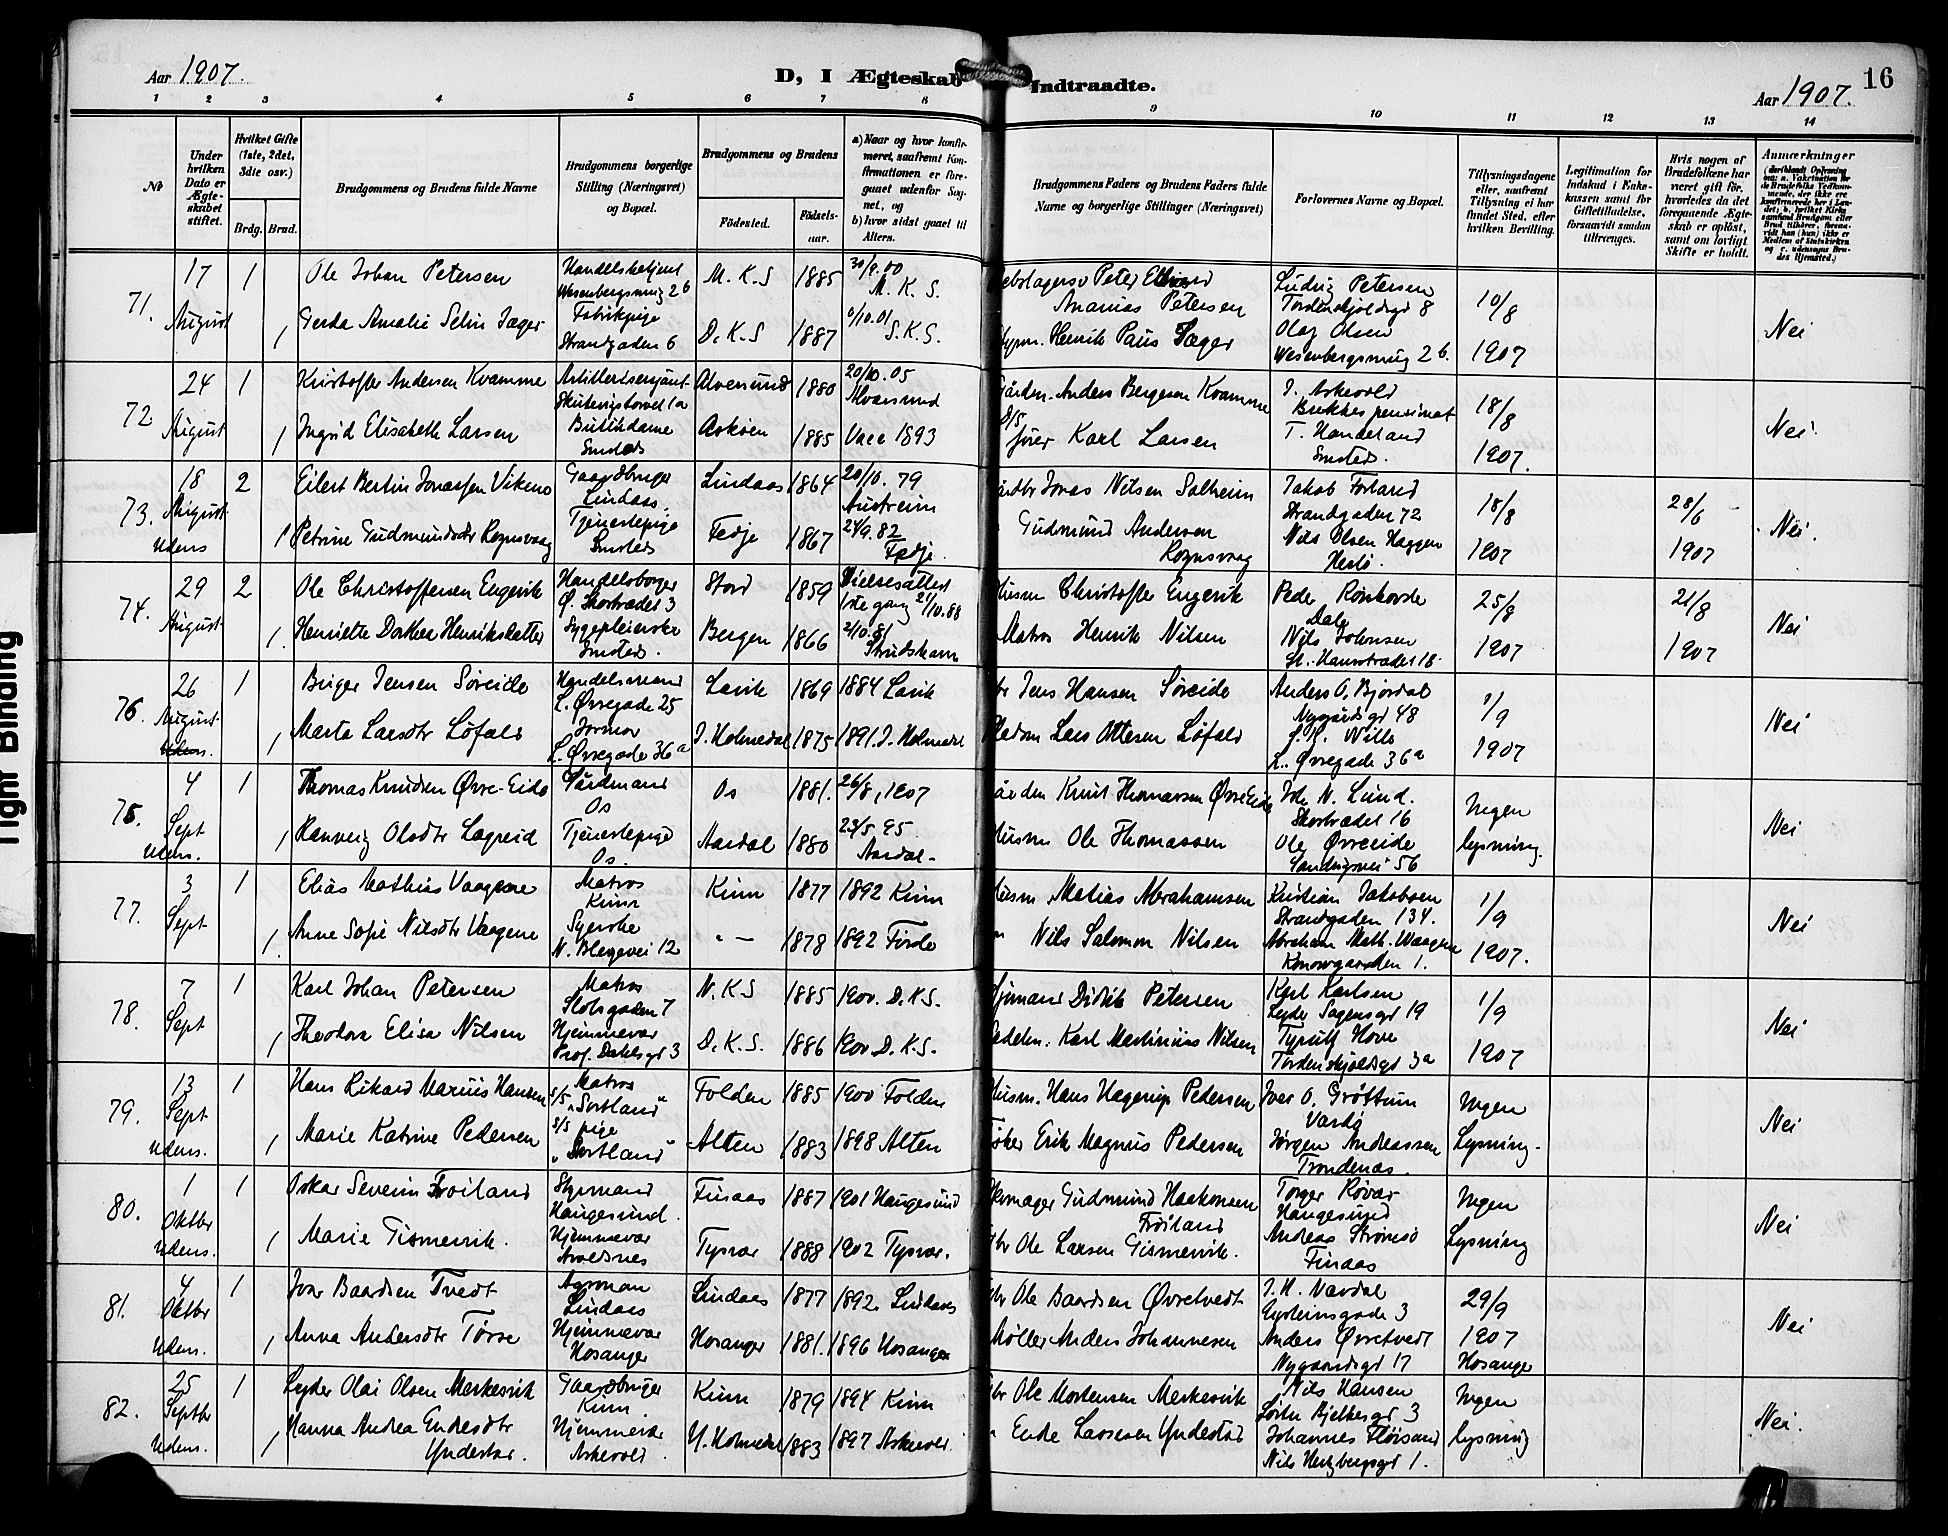 Aar 1907.
D, I Ægteskab Indtraadte.
Aar 1907.
16
1 2 3 4 5 6 7 8 9 10 11 12 13 14
No
Under hvilken Dato er Ægteskabet stiftet.
Hvilket Gifte (1ste, 2det, 3die osv.)
Brdg. Brud.
Brudgommens og Brudens fulde Navne
Brudgommens borgerlige Stilling (Næringsvei) og Bopæl.
Brudgommens og Brudens
Födested.
Födselsaar.
a) Naar og hvor konfirmeret, saafremt Konfirmationen er foregaaet udenfor Sognet, og
b) hvor sidst gaaet til Alters.
Brudgommens Faders og Brudens Faders fulde Navne og borgerlige Stillinger (Næringsvei)
Forlovernes Navne og Bopæl.
Tillysningsdagene eller, saafremt Tillysning ei har fundet Sted, efter hvilken Bevilling.
Legitimation for Indskud i Enkekassen samt for Giftetilladelse, forsaavidt saadan tiltrænges.
Hvis nogen af Brudefolkene har været gift för, hvorledes da det foregaaende Ægteskab er oplöst, samt om lovligt Skifte er holdt.
Anmærkninger
71. 17 August 1 Ole Johan Petersen Handelsbetjent Wesenbergsmug 26 M. K. S 1885 30/9.00 M. K. S.
Peter Edvard Ananias Petersen Ludvig Petersen Tordenskjoldsgd 8 10/8
1 Gerda Amalie Selin Jæger Fabrikpige Strandgaden 6 D. K. S 1887 1/10.01 S. K. S.
Henrik Paus Jæger Olaf Olsen Wesenbergsmug 26. 1907 Nei
72. 24 August 1 Kristoffer Andersen Kvamme Artillerisersjant Skuteviqstorvet 1a Alversund 1880 20/10.05 Alversund
Gården. Anders Bergesen Kvamme J. Askevold 18/8
1 Ingrid Elisabeth Larsen Butikdame Smsteds Askøen 1885 Vacc 1893
D/S fører Karl Larsen T. Handeland Smsteds. 1907. Nei.
73. 18 August Udens 2 Eilert Bertin Jonassen Vikeno Gaardbruger Lindaas. Lindaas 1864 20/10.79 Austreim
Jonas Nilsen Solheim Jakob Forland Strandgaden 72 18/8 28/6
1 Petrine Gudmundsdtr Rognsvaag Tjenestepige Smsteds Fedje 1867 24/9.82 Fedje.
Gudmund Andersen Rognsvaag Nils Olsen Haggen Herlø. 1907 1907 Nei.
74. 29 August 2 Ole Christoffersen Engevik Handelsborger Ø. Skostrædet 3 Stord 1859 Vielsesattest 1ste gang 21/10.88
Husm Christoffer Engevik Peder Rønhovde Dale 25/8 21/8
1. Henriette Dorthea Henriksdatter Sygepleierske Smsteds. Bergen 1866 2/10.81 Strudshavn
Matros Henrik Nilsen Nils Johnsen St. Hansstrædet 18. 1907 1907 Nei
76. 26 August. Udens. 1 Birger Jensen Søreide Handelsmand L. Øvregade 25 Lavik 1869 1884 Lavik
Jens Hansen Søreide Anders O. Bjordal Nygårdsgd 48 1/9
1 Marta Larsdtr Løfald Jormor L. Øvregade 36a I. Holmedal 1875 1891 I. Holmedal
Lars Ottesen Løfald J. H. Wille L. Øvregade 36a 1907 Nei
75. 4 Sept Udens. 1 Thomas Knudsen Øvre-Eide Gårdmand Os Os 1881. 26/8, 1907
Knut Thomassen Øvre Eide Joh. N. Lund. Skostrædet 16 Ingen
1 Rannveig Olsdtr Lægreid Tjenestepige Os. Aardal 1880 23/5 95 Aardal.
Husm Ole Thomassen Ole Øvreeide Sandviqsvei 56 lysning. Nei
77. 3 Sept 1 Elias Mathias Vaagene Matros Kinn Kinn 1877 1892 Kinn
Husm Matias Abrahamsen Kristian Jakobsen Strandgaden 134. 1/9
1. Anne Sofie Nilsdtr Vaagene Syerske N. Blegevei 12 " — 1878 1892 Førde
" Nils Salomon Nilsen Abraham Math. Waagene Konowgaarden 1. 1907. Nei
78. 7 Sept 1 Karl Johan Petersen Matros Slotsgaden 7 N. K. S 1885 1900. D. K. S.
Didrik Petersen Karl Karlsen Lyder Sagensgd 19 1/9
1 Theodora Elisa Nilsen Hjemmevær Prof. Dahlsgd 3 D. K. S. 1886 1900 D. K. S.
Karl Martinius Nilsen Hove Tordenskjoldsgd 3a 1907 Nei
79. 13 Sept Udens. 1 Hans Rikard Marius Hansen Matros s/s "Sortland" Folden 1885 1900 Folden
Husm. Hans Hagerup Pedersen Iver O. Grøttum Vardø Ingen
1 Marie Katrine Pedersen s/s pige "Sortland" Alten 1883 1898 Alten
Fisker Erik Magnus Pedersen Jørgen Andreassen Trondenas. Lysning. Nei
80. 1 Oktbr Udens. 1 Oskar Severin Frøiland Styrmand Haugesund. Finaas 1887 1901 Haugesund
Skomager Gudmund Haakonsen Frøiland Torger Røvær Haugesund Ingen
1 Marie Tismenvik. Hjemmevær Avaldsnes Tysvær 1888 1902 Tysvær.
Gbr Ole Larsen Gismervik. Andreas Strømsø Finaas Lysning Nei
81. 4 Oktbr Udens. 1 Ivar Baardsen Tvedt Agronom Lindaas Lindaas 1877 1892 Lindaas
Gbr Ole Baardsen Øvretvedt J. H. Vardal Eysteinsgade 3 29/9
1 Anna Andersdtr Tørse Hjemmevær Hosanger Hosanger 1881. 1896 Hosanger
Møller Anders Johannesen Anders Øvretvedt Nygaardsgd 17 1907 Hosanger Nei
82. 25 Septbr Udens. 1 Lyder Olai Olsen Merkesvik Gaardbruger Kinn Kinn 1879 1894 Kinn
Gbr Ole Mortensen Merkesvik Nils Hansen Sørbn Bjelkesgd 3 Ingen
1 Hanna Andrea Endresdtr Yndestad. Hjemmevær Askevold. Y. Holmedal 1883 1897 Askevold.
" Ende Lassesen Yndestad Johannes Fløisand Nils Hertzbergsgd 1. lysning Nei.
Tight Binding